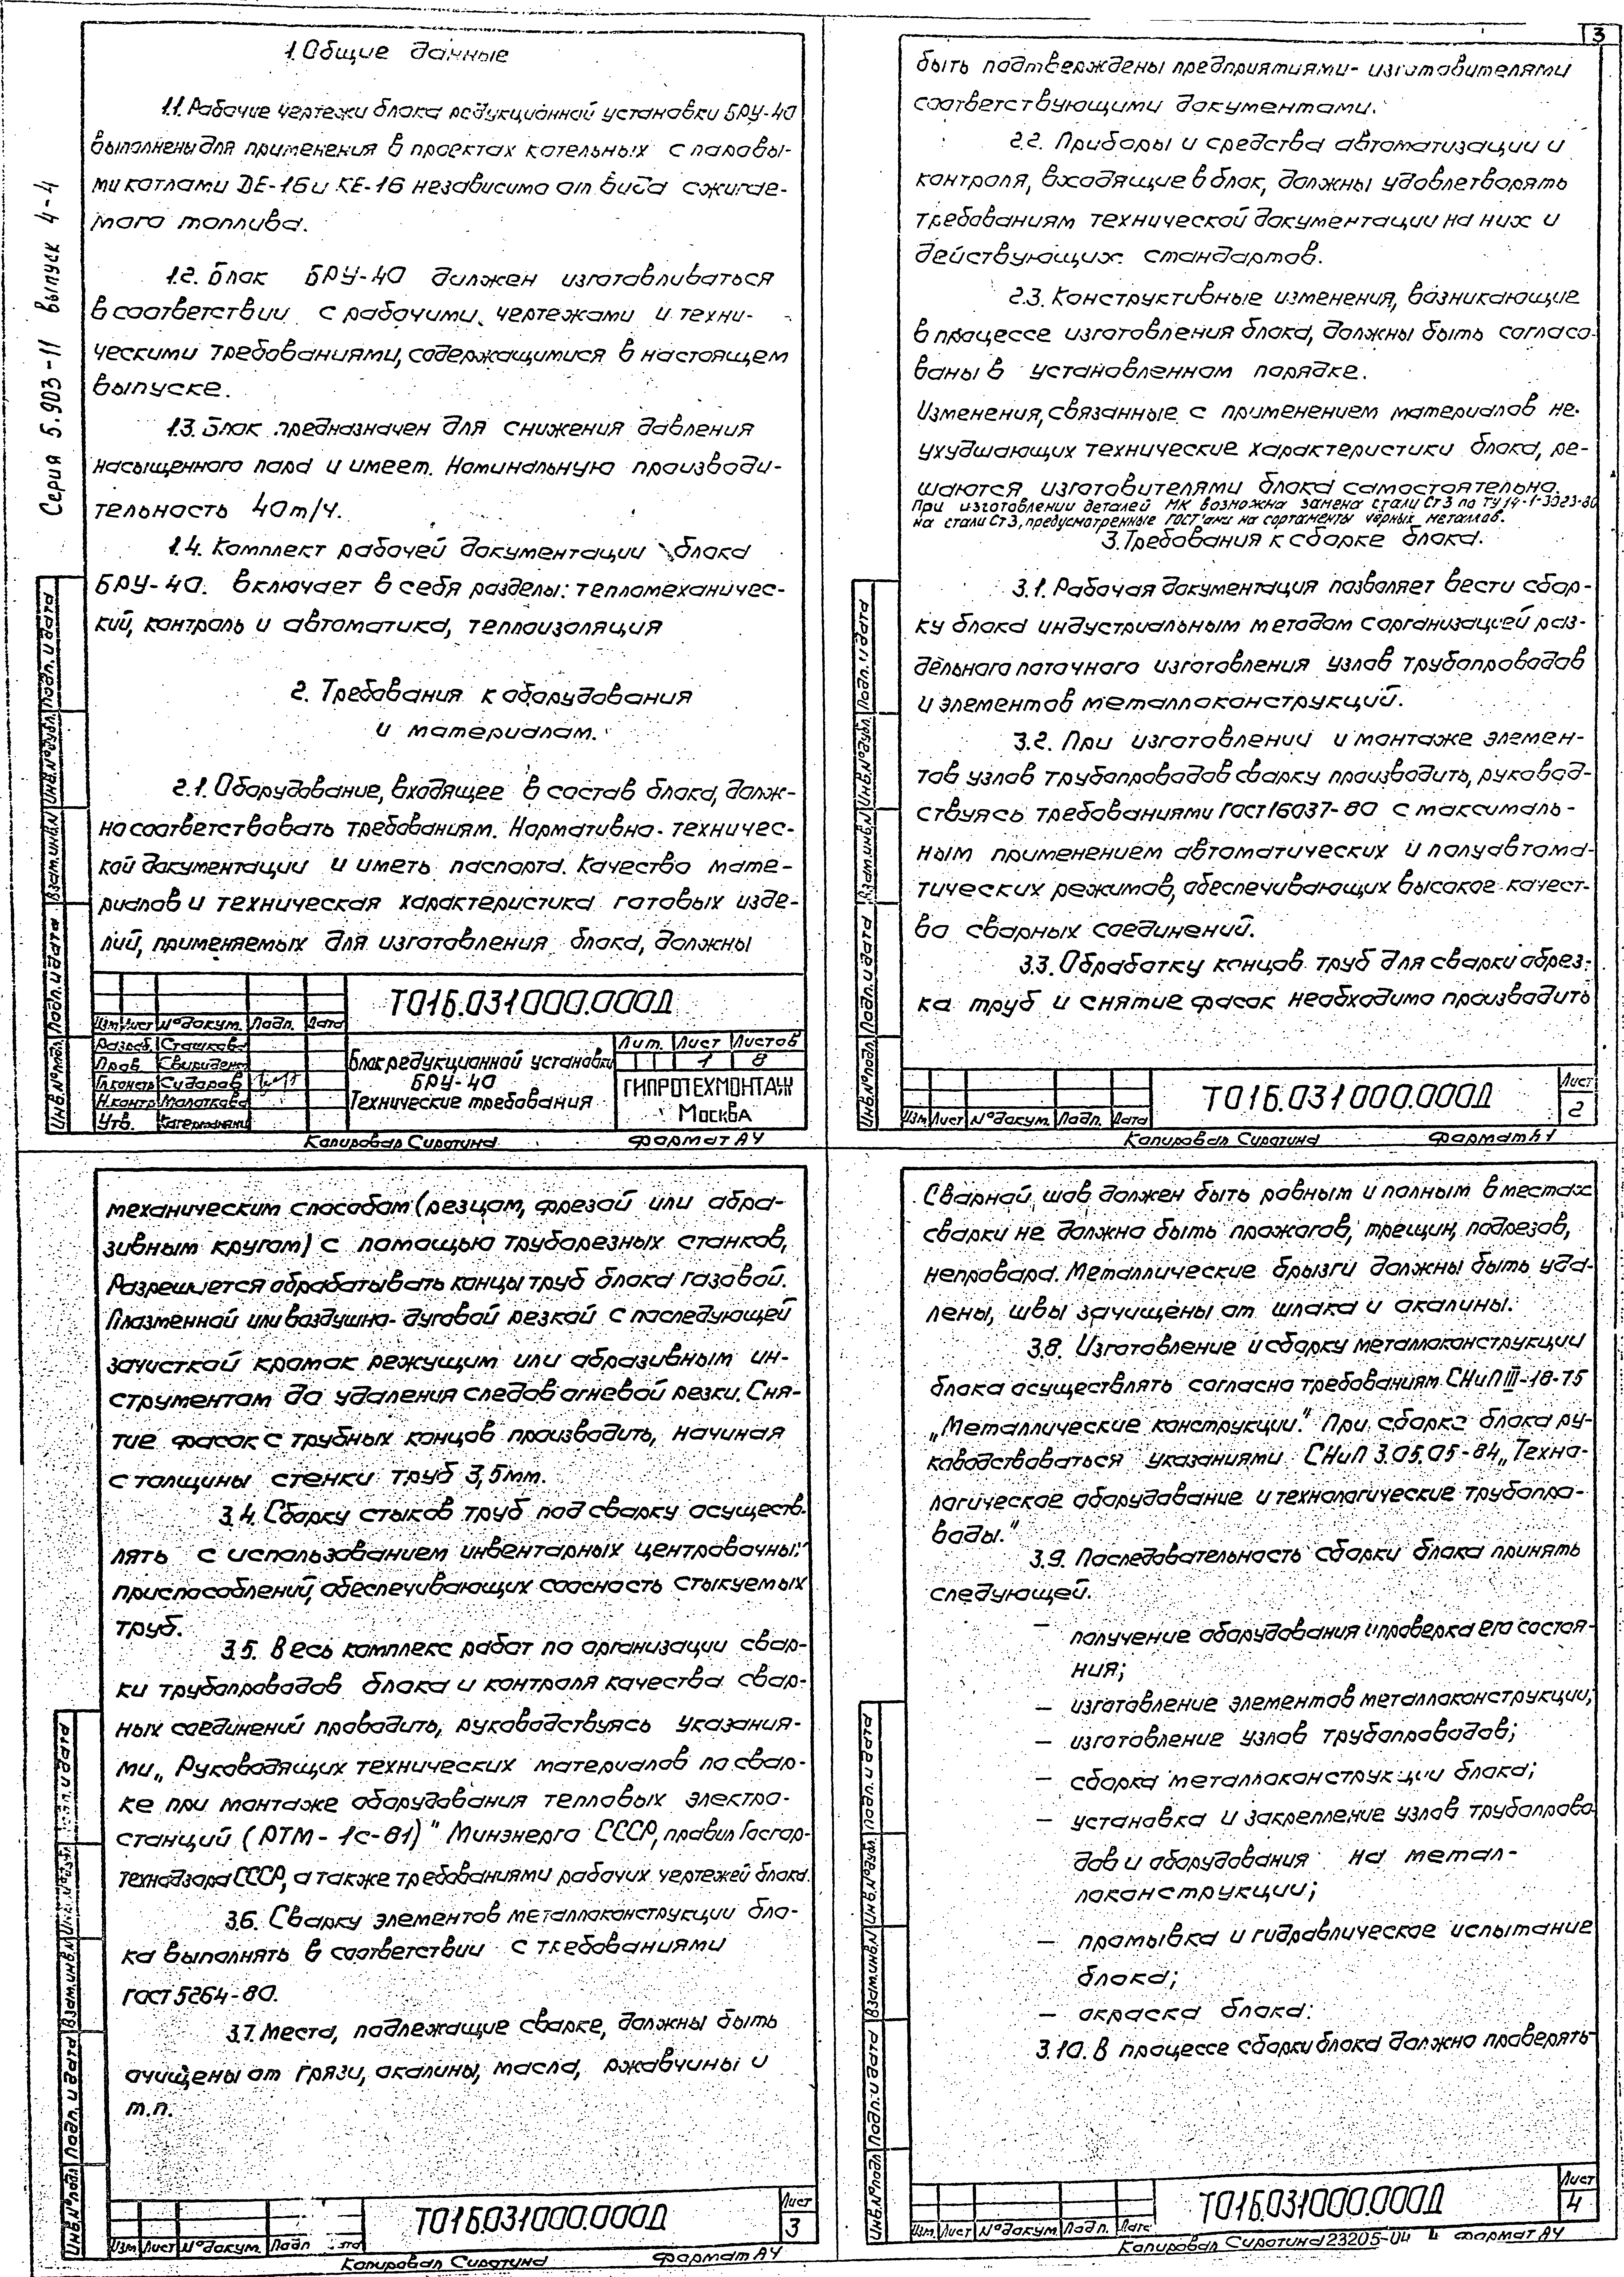 3
Серия 5.903-11 выпуск 4-4
1. Общие данные
1.1. Рабочие чертежи блока редукционной установки БРУ-40
выполнены для применения в проектах котельных с паровы-
ми котлами DE-16 и КЕ-16 независимо от вида сжигае-
мого топлива.
1.2. Блок БРУ-40 должен изготавливаться
в соответствии с рабочими чертежами и техни-
ческими требованиями, содержащимися в настоящем
выпуске.
1.3. Блок предназначен для снижения давления
насыщенного пара и имеет. Номинальную производи-
тельность 40т/ч.
1.4. Комплект рабочей документации блока
БРУ-40. включает в себя разделы: тепломеханичес-
кий, контроль и автоматика, теплоизоляция
2. Требования к оборудования
и материалам.
2.1. Оборудование, входящее в состав блока, долж-
но соответствовать требованиям. Нормативно-техничес-
кой документации и иметь паспорта. Качество мате-
риалов и техническая характеристика готовых изде-
лий, применяемых для изготовления блока, должны
Т01Б.031000.000Д
Изм Лист № докум. Подп. Дата
Разраб. Сташкова
Пров. Свириденко
Гл.констр Сударов
Н.контр Молоткова
Утв.
Блок редукционной установки
БРУ-40
Технические требования
Лит. Лист Листов
1 8
ГИПРОТЕХМОНТАЖ
Москва
Инв.№подл. Подп. и дата Взам.инв.№ Инв.№дубл. Подп. и дата
Копировал Сиротина Формат А4
быть подтверждены предприятиями-изготовителями
соответствующими документами.
2.2. Приборы и средства автоматизации и
контроля, входящие в блок, должны удовлетворять
требованиям технической документации на них и
действующих стандартов.
2.3. Конструктивные изменения, возникающие
в процессе изготовления блока, должны быть согласо-
ваны в установленном порядке.
Изменения, связанные с применением материалов не-
ухудшающих технические характеристики блока, ре-
шаются изготовителями блока самостоятельно.
При изготовлении деталей МК возможна замена стали Ст3 по ТУ14-1-3023-80
на стали Ст3, предусмотренные ГОСТ'ами на сортаменты чёрных металлов.
3. Требования к сборке блока.
3.1. Рабочая документация позволяет вести сбор-
ку блока индустриальным методом с организацией раз-
дельного поточного изготовления узлов трубопроводов
и элементов металлоконструкций.
3.2. При изготовлении и монтаже элемен-
тов узлов трубопроводов сварку производить, руковод-
ствуясь требованиями ГОСТ16037-80 с максималь-
ным применением автоматических и полуавтома-
тических режимов, обеспечивающих высокое качест-
во сварных соединений.
3.3. Обработку концов труб для сварки обрез-
ка труб и снятие фасок необходимо производить
Инв.№подл. Подп. и дата Взам.инв.№ Инв.№дубл. Подп. и дата
Изм Лист № докум. Подп. Дата
Т01Б.031000.000Д
Лист
2
Копировал Сиротина Формат А4
механическим способом (резцом, фрезой или абра-
зивным кругом) с помощью труборезных станков,
Разрешается обрабатывать концы труб блока газовой.
Плазменной или воздушно-дуговой резкой с последующей
зачисткой кромок режущим или абразивным ин-
струментом до удаления следов огневой резки. Сня-
тие фасок с трубных концов производить, начиная
с толщины стенки труб 3,5мм.
3.4. Сборку стыков труб под сварку осуществ-
лять с использованием инвентарных центровочных
приспособлений, обеспечивающих соосность стыкуемых
труб.
3.5. Весь комплекс работ по организации свар-
ки трубопроводов блока и контроля качества свар-
ных соединений проводить, руководствуясь указания-
ми „Руководящих технических материалов по свар-
ке при монтаже оборудования тепловых электро-
станций (РТМ-1с-81)" Минэнерго СССР, правил Госгор-
технадзора СССР, а также требованиями рабочих чертежей блока.
3.6. Сварку элементов металлоконструкции бло-
ка выполнять в соответствии с требованиями
ГОСТ 5264-80.
3.7. Места, подлежащие сварке, должны быть
очищены от грязи, окалины, масла, ржавчины и
т.п.
Инв.№подл. Подп. и дата Взам.инв.№ Инв.№дубл. Подп. и дата
Изм Лист № докум. Подп
Т01Б.031000.000Д
Лист
3
Копировал Сиротина Формат А4
Сварной шов должен быть ровным и полным в местах
сварки не должно быть прожогов, трещин, подрезов,
непровара. Металлические брызги должны быть уда-
лены, швы зачищены от шлака и окалины.
3.8. Изготовление и сборку металлоконструкции
блока осуществлять согласно требованиям СНиП III-18-75
„Металлические конструкции." При сборке блока ру-
ководствоваться указаниями СНиП 3.05.05-84 „Техно-
логическое оборудование и технологические трубопро-
воды."
3.9. Последовательность сборки блока принять
следующей.
— получение оборудования и проверка его состоя-
ния;
— изготовление элементов металлоконструкции;
— изготовление узлов трубопроводов;
— сборка металлоконструкции блока;
— установка и закрепление узлов трубопрово
дов и оборудования на метал-
локонструкции;
— промывка и гидравлическое испытание
блока;
— окраска блока.
3.10. В процессе сборки блока должно проверять-
Инв.№подл. Подп. и дата Взам.инв.№ Инв.№дубл. Подп. и дата
Изм. Лист № докум. Подп. Дата
Т01Б.031000.000Д
Лист
4
Копировал Сиротина 23205-04 4 Формат А4